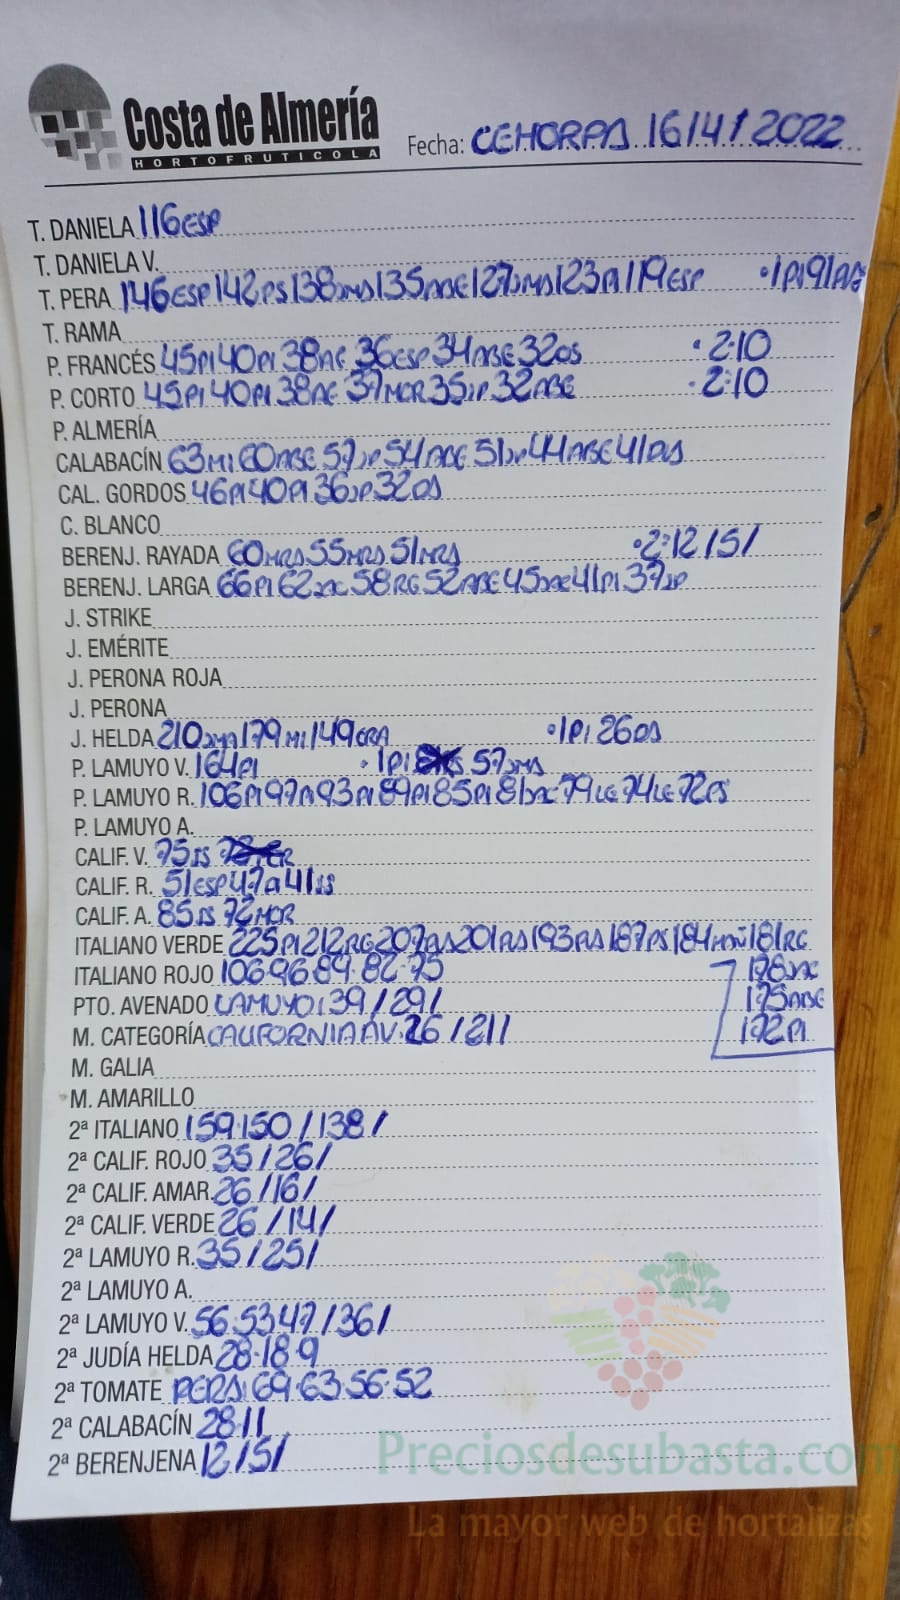 Costa de Almería
HORTOFRUTICOLA
Fecha: CEHORPA 16/4/2022
T. DANIELA 116ESP
T. DANIELA V.
T. PERA 146ESP 142PS 138JMA 135ABE 127JMA 123PI 119ESP ·1PI 91
T. RAMA
P. FRANCÉS 45PI 40PI 38AE 36ESP 34ABE 32DS ·2:10
P. CORTO 45PI 40PI 38AE 37MOR 35JP 32ABE ·2:10
P. ALMERÍA
CALABACÍN 63MI 60ABE 57JP 54ABE 51JP 44ABE 41DS
CAL. GORDOS 46PI 40PI 36JP 32DS
C. BLANCO
BERENJ. RAYADA 60MRS 55MRS 51MRS ·2:12/5/
BERENJ. LARGA 66PI 62 58RG 52ABE 45 41PI 37JP
J. STRIKE
J. EMÉRITE
J. PERONA ROJA
J. PERONA
J. HELDA 210JMA 179MI 149GRA ·1PI 26DS
P. LAMUYO V. 164PI ·1PI 57JMA
P. LAMUYO R. 106PI 97 93PI 89PI 85PI 81 79LG 74LG 72PS
P. LAMUYO A.
CALIF. V. 75JS
CALIF. R. 51ESP 47 41JS
CALIF. A. 85JS 72MOR
ITALIANO VERDE 225PI 212RG 207 201 193 187PS 184 181RG
ITALIANO ROJO 106·96·89·82·75 178
PTO. AVENADO LAMUYO: 39/29/ 175ABE
M. CATEGORÍA CALIFORNIA AV. 26/21/ 172PI
M. GALIA
M. AMARILLO
2ª ITALIANO 159·150/138/
2ª CALIF. ROJO 35/26/
2ª CALIF. AMAR. 26/16/
2ª CALIF. VERDE 26/14/
2ª LAMUYO R. 35/25/
2ª LAMUYO A.
2ª LAMUYO V. 56·53·47/36/
2ª JUDÍA HELDA 28·18·9
2ª TOMATE PERA: 69·63·56·52
2ª CALABACÍN 28·11
2ª BERENJENA 12/5/
Preciosdesubasta.com
La mayor web de hortalizas